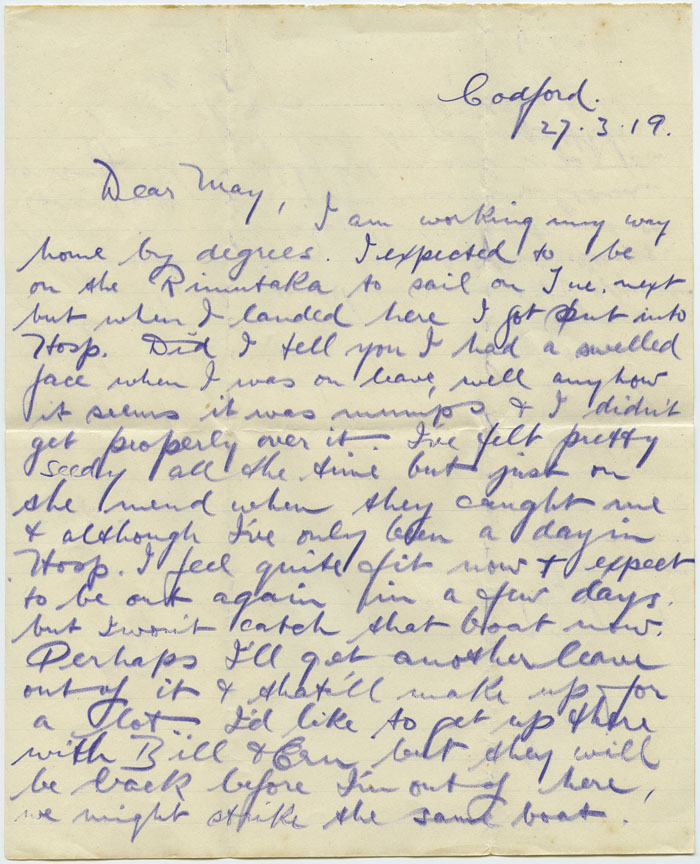 Codford.
27.3.19.
Dear May,
I am working my way
home by degrees. I expected to be
on the Rimutaka to sail on Tue. next
but when I landed here I got put into
Hosp. Did I tell you I had a swelled
face when I was on leave, well anyhow
it seems it was mumps & I didn't
get properly over it. I've felt pretty
seedy all the time but just on
the mend when they caught me
& although I've only been a day in
Hosp. I feel quite fit now & expect
to be out again in a few days.
but I won't catch that boat now.
Perhaps I'll get another leave
out of it & that'll make up for
a lot. I'd like to get up there
with Bill & Ern but they will
be back before I'm out of here,
we might strike the same boat.